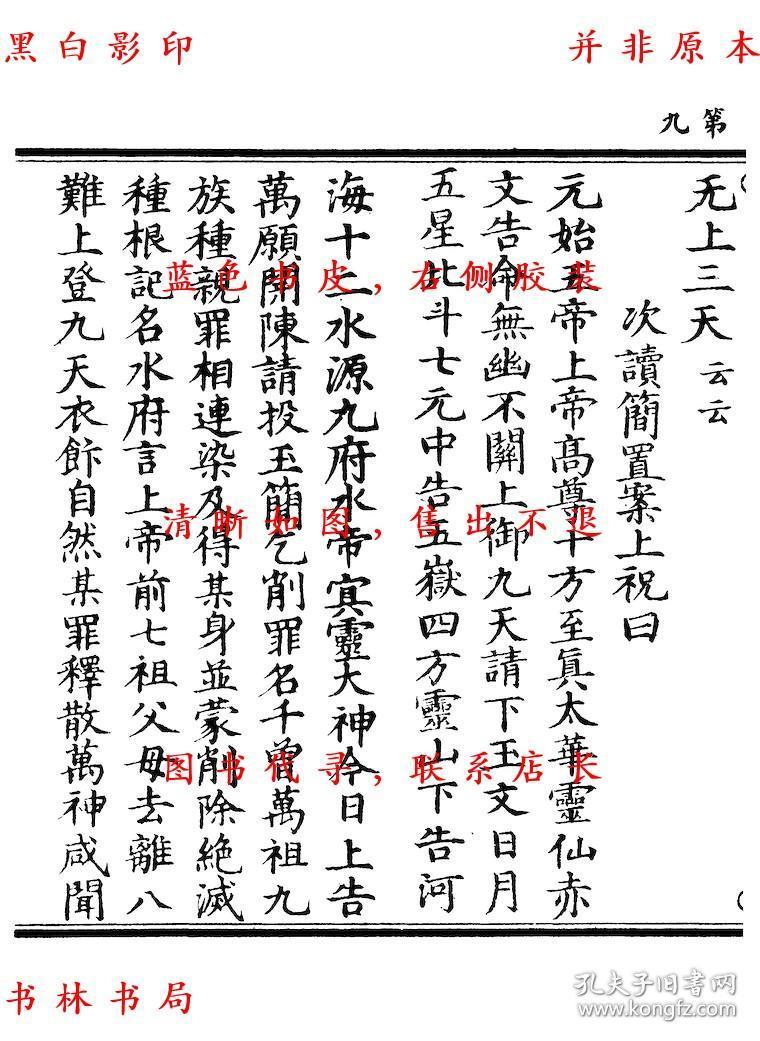 黑白影印 并非原本
第九
无上三天云云
次讀簡置案上祝曰
元始五帝上帝高尊十方至真太華靈仙赤
文告命無幽不關上御九天請下玉文日月
五星北斗七元中告五嶽四方靈山下告河
海十二水源九府水帝冥靈大神今日上告
萬願開陳請投玉簡乞削罪名千曾萬祖九
族種親罪相連染及得某身並蒙削除絕滅
種根記名水府言上帝前七祖父母去離八
難上登九天衣飾自然某罪釋散萬神咸聞
蓝色书皮,右侧胶装
清晰如图,售出不退
图书代寻,联系店长
书林书局
孔夫子旧书网
www.kongfz.com